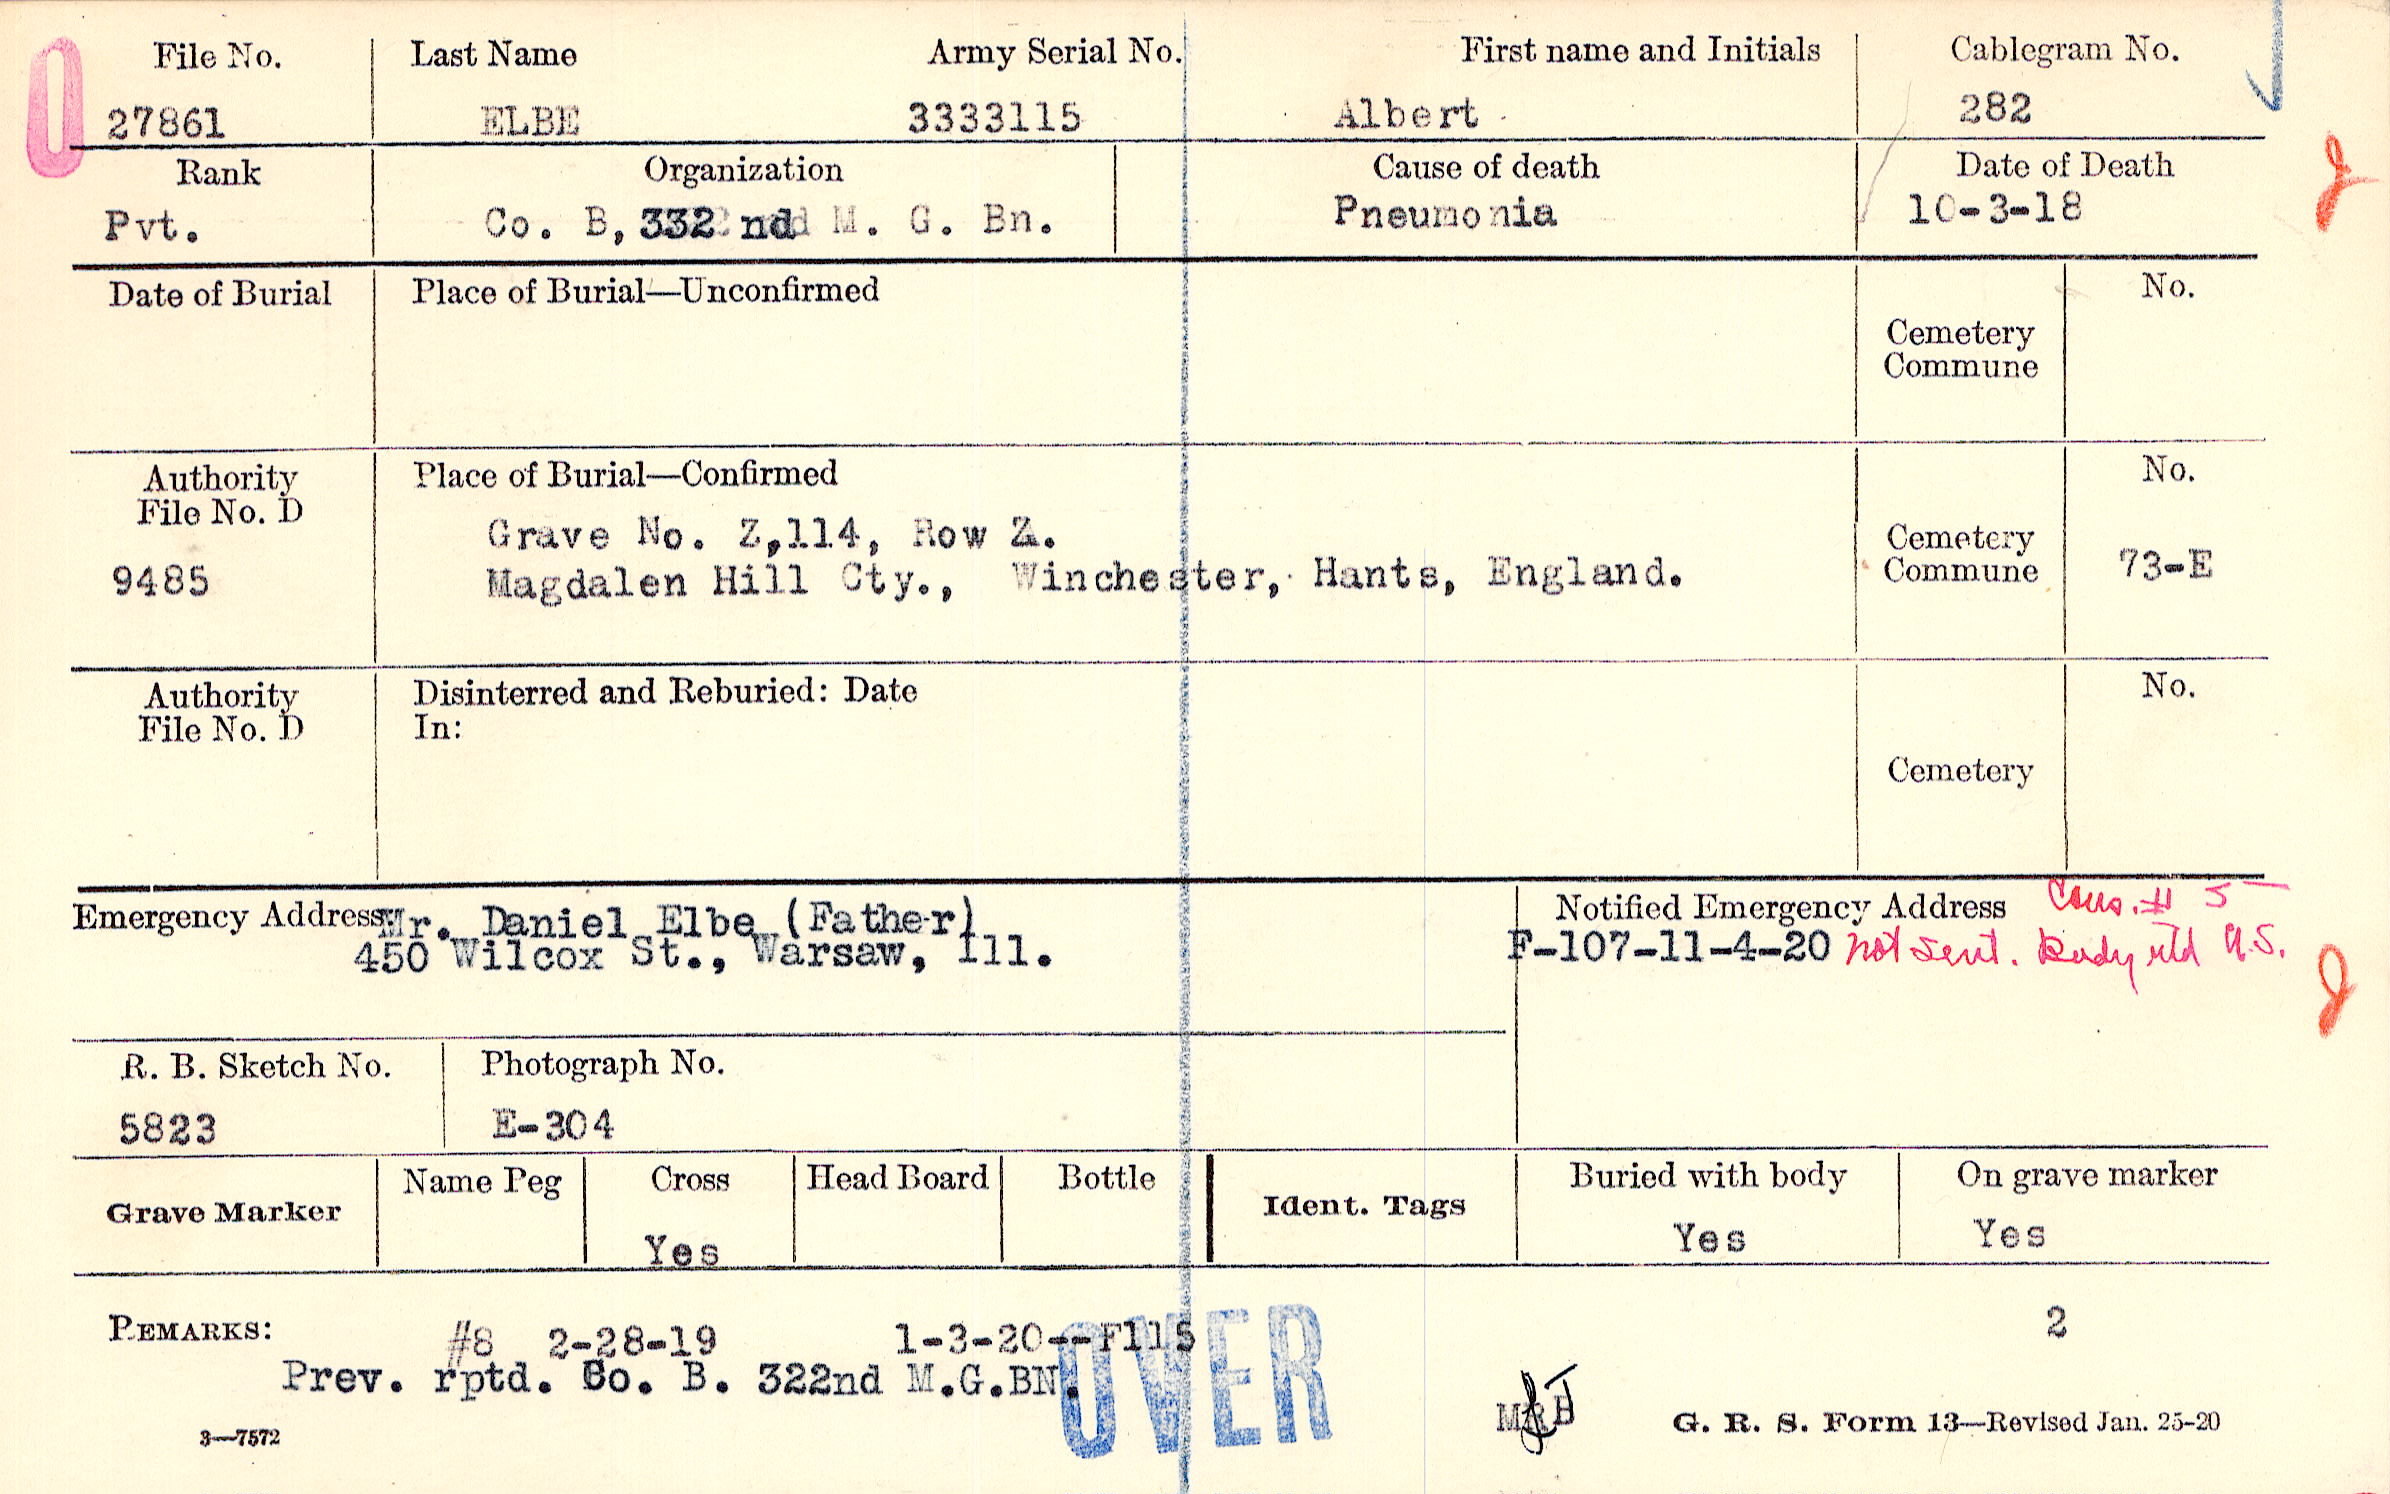 File No. Last Name Army Serial No. First name and Initials Cablegram No.
27861 ELBE 3333115 Albert 282
Rank Organization Cause of death Date of Death
Pvt. Co. B, 332 nd M. G. Bn. Pneumonia 10-3-18
Date of Burial Place of Burial—Unconfirmed No.
Cemetery
Commune
Authority Place of Burial—Confirmed No.
File No. D
Grave No. Z,114, Row Z. Cemetery
9485 Magdalen Hill Cty., Winchester, Hants, England. Commune 73-E
Authority Disinterred and Reburied: Date No.
File No. D In:
Cemetery
Emergency Address Mr. Daniel Elbe (Father) Notified Emergency Address
450 Wilcox St., Warsaw, Ill. F-107-11-4-20 not sent. Body rtd U.S.
R. B. Sketch No. Photograph No.
5823 E-304
Grave Marker Name Peg Cross Head Board Bottle Ident. Tags Buried with body On grave marker
Yes Yes Yes
REMARKS: #8 2-28-19 1-3-20--F115 2
Prev. rptd. Co. B. 322nd M.G.BN.
OVER
3—7572 G. R. S. Form 13—Revised Jan. 25-20